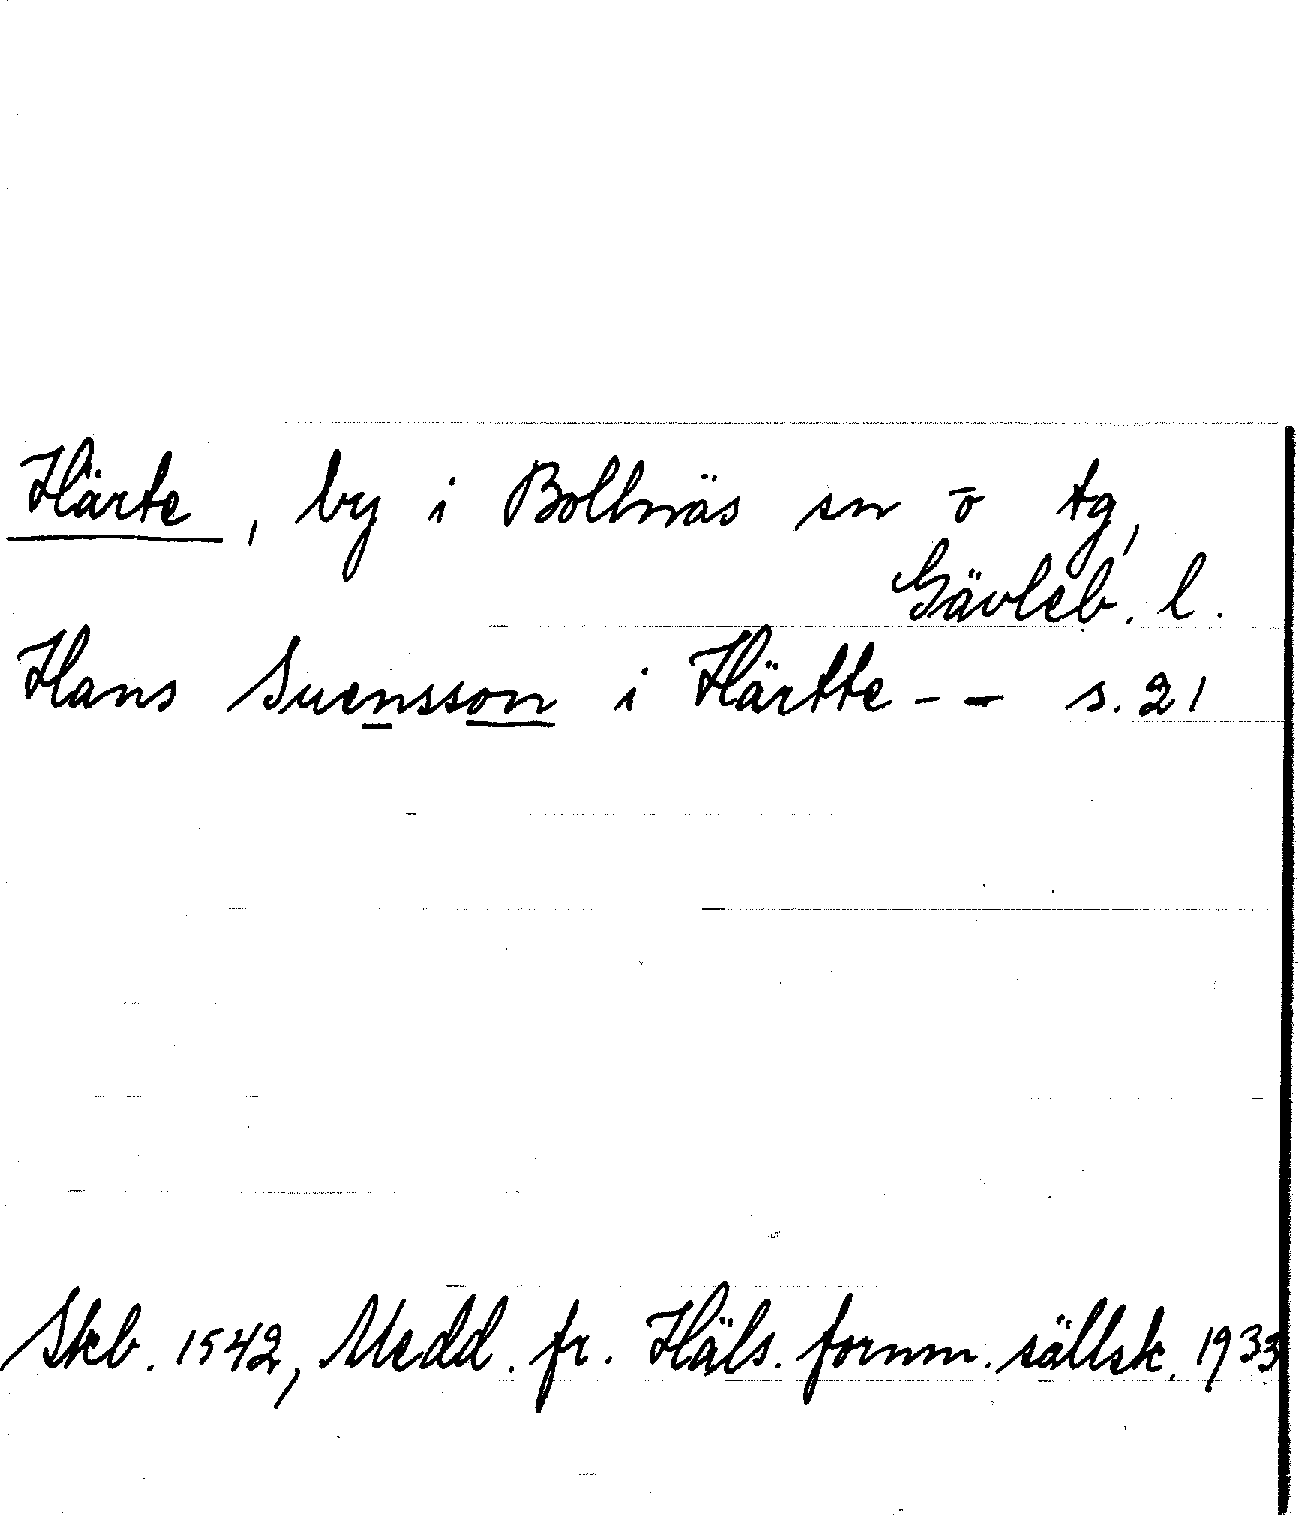 Härte, by i Bollnäs sn o tg,
Gävleb. l.
Hans Suensson i Härtte - - s. 21
Skb. 1542, Medd. fr. Häls. fornm. sällsk. 1933